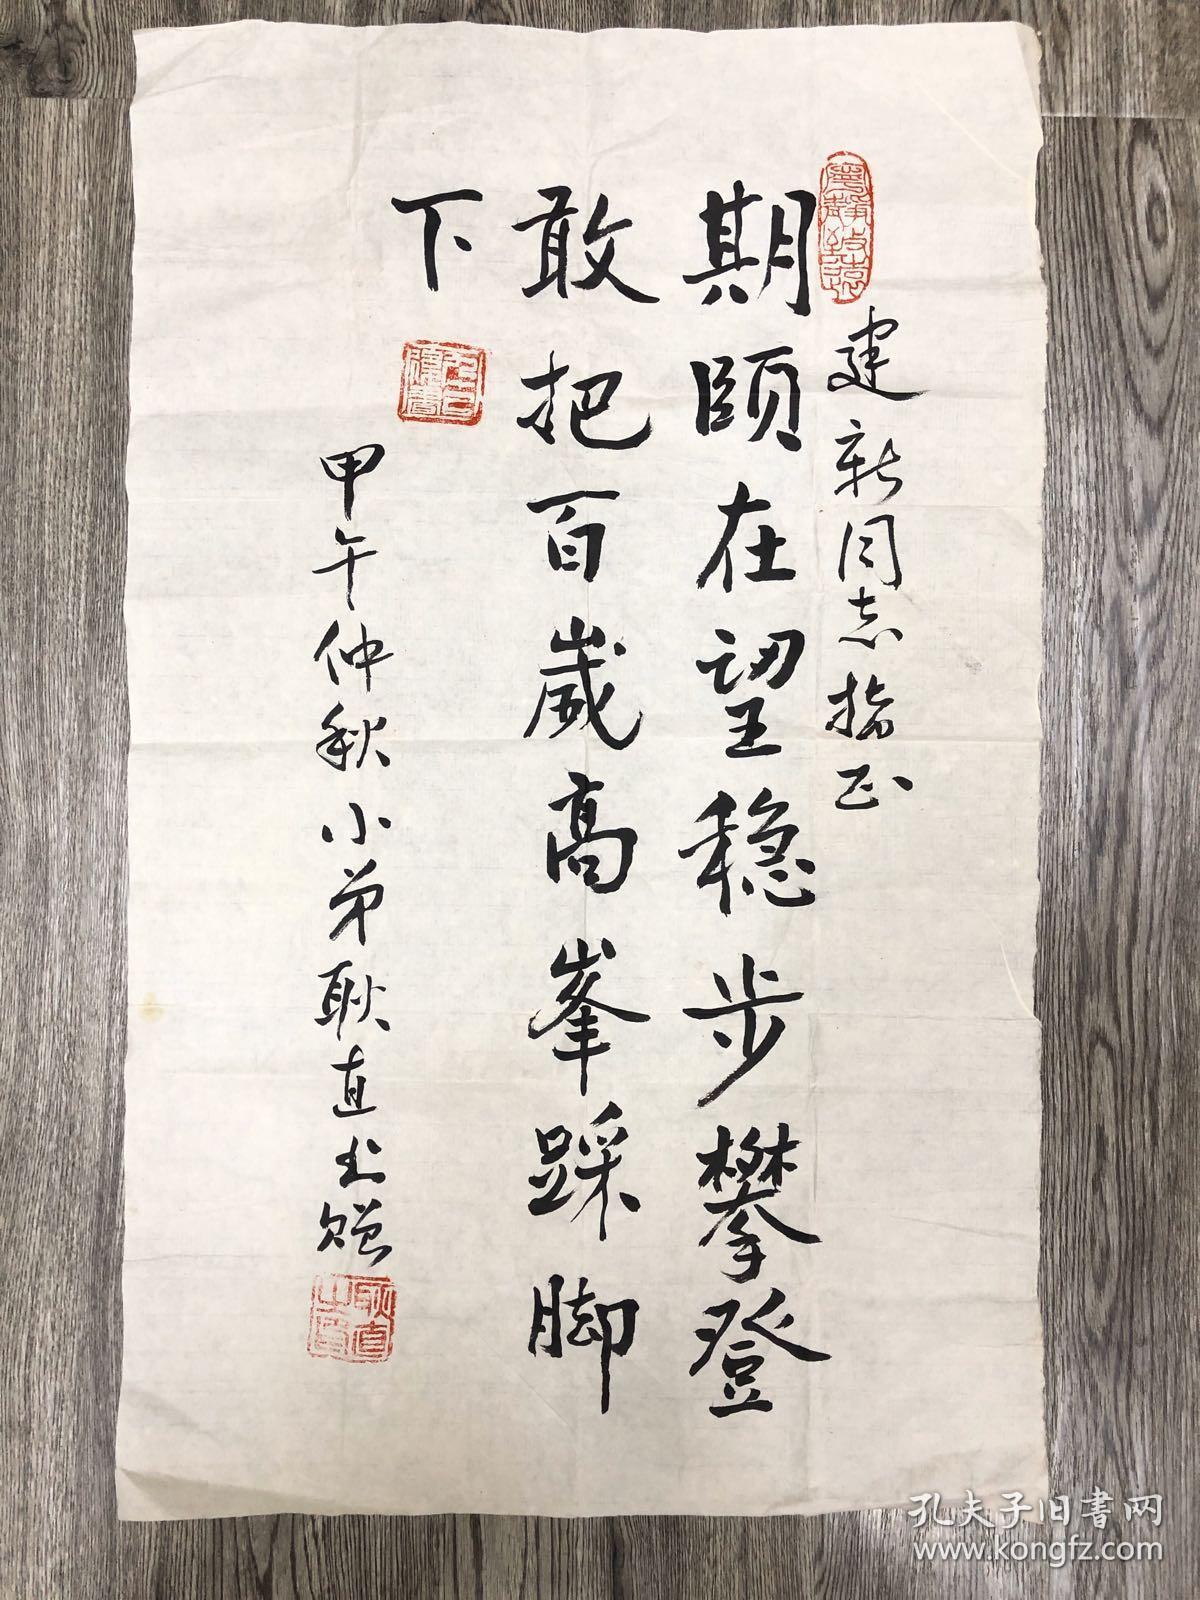 寧靜致遠
建新同志指正
期頤在望稳步攀登
敢把百歲高峯踩脚
下
甲午仲秋小弟耿直书赠
耿直之印
孔夫子旧書网
www.kongfz.com